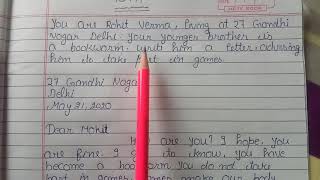 You are Rohit Verma, living at 27 Gandhi
Nagar Delhi. Your younger brother is
a bookworm. Write him a letter advising
him to take part in games.
27 Gandhi Nagar
Delhi
May 21, 2020
Dear Mohit
How are you? I hope, you
are fine. I to know, you have
become a bookworm you do not take
part in games. Games make our body